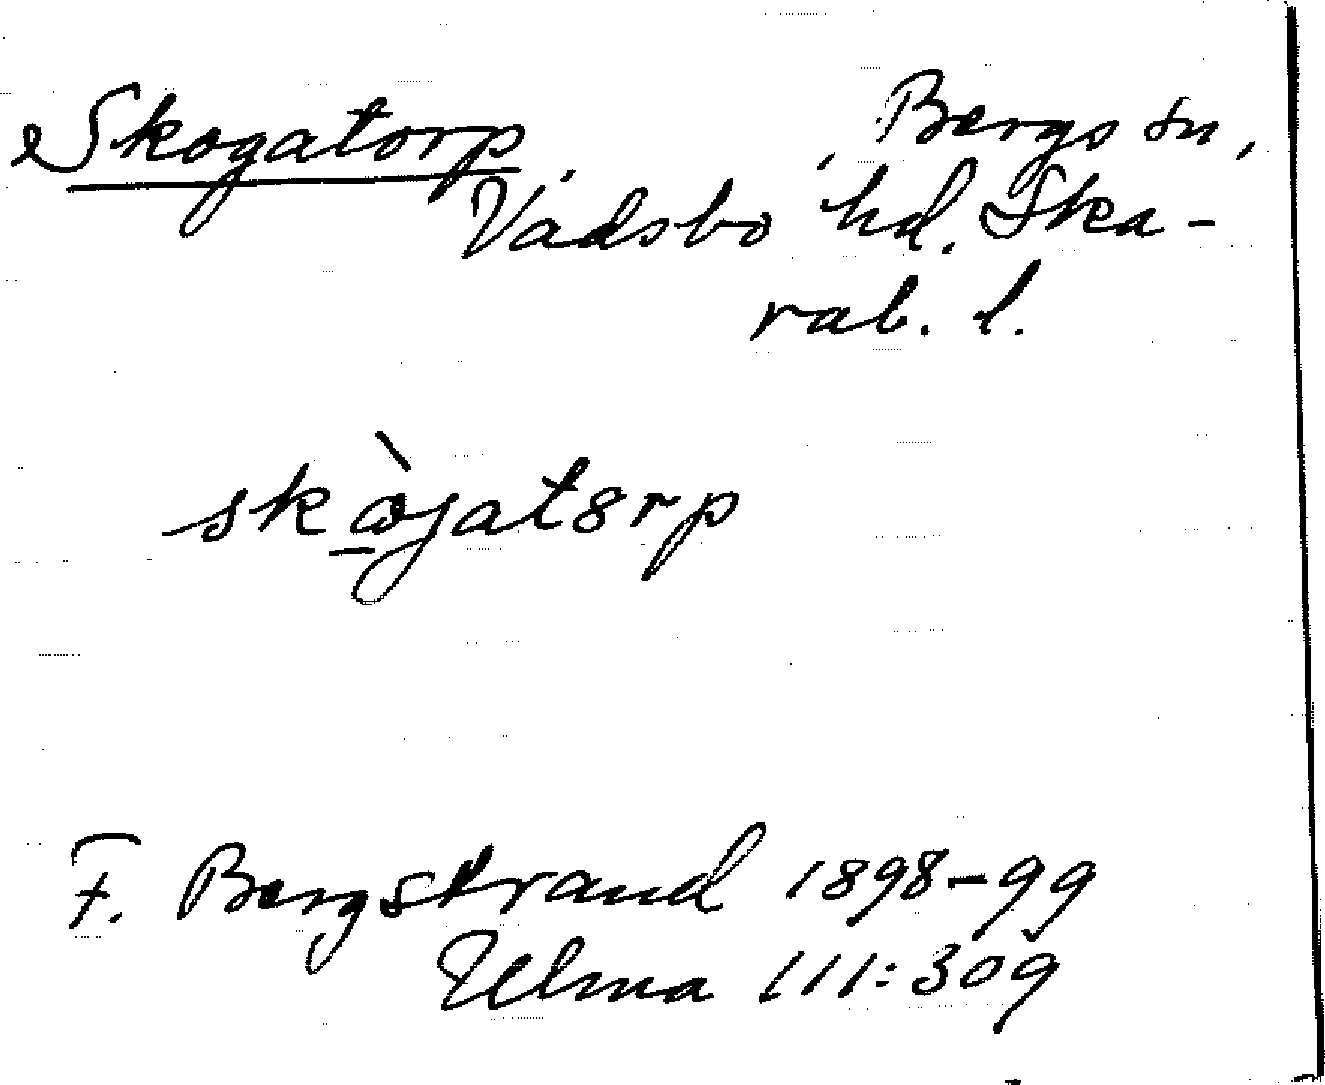 Skogatorp. Bergs sn,
Vadsbo hd. Ska-
rab. l.
skò̱gatȣrp
F. Bergstrand 1898-99
Ulma 111:309